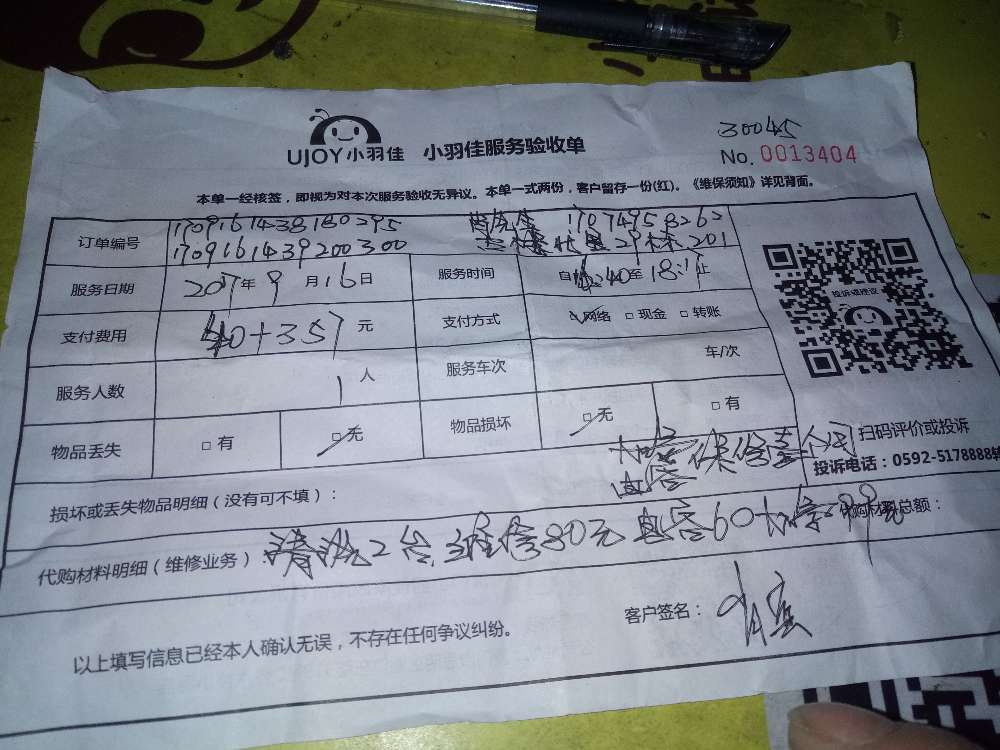 30045
UJOY小羽佳 小羽佳服务验收单 No. 0013404
本单一经核签，即视为对本次服务验收无异议。本单一式两份，客户留存一份(红)。《维保须知》详见背面。
订单编号 1709161438180295 17074958262
1709161439200300 29栋201
服务日期 2017年9月16日 服务时间 自 :40至18:17止
支付费用 40+357元 支付方式 网络 □现金 □转账
投诉或建议
服务人数 1人 服务车次 车/次
物品丢失 □有 □无 物品损坏 □无 □有
扫码评价或投诉
投诉电话：0592-5178888转
损坏或丢失物品明细（没有可不填）： 保修
代购材料明细（维修业务）：清洗2台 维修80元 60 代购材料总额：
客户签名：
以上填写信息已经本人确认无误，不存在任何争议纠纷。